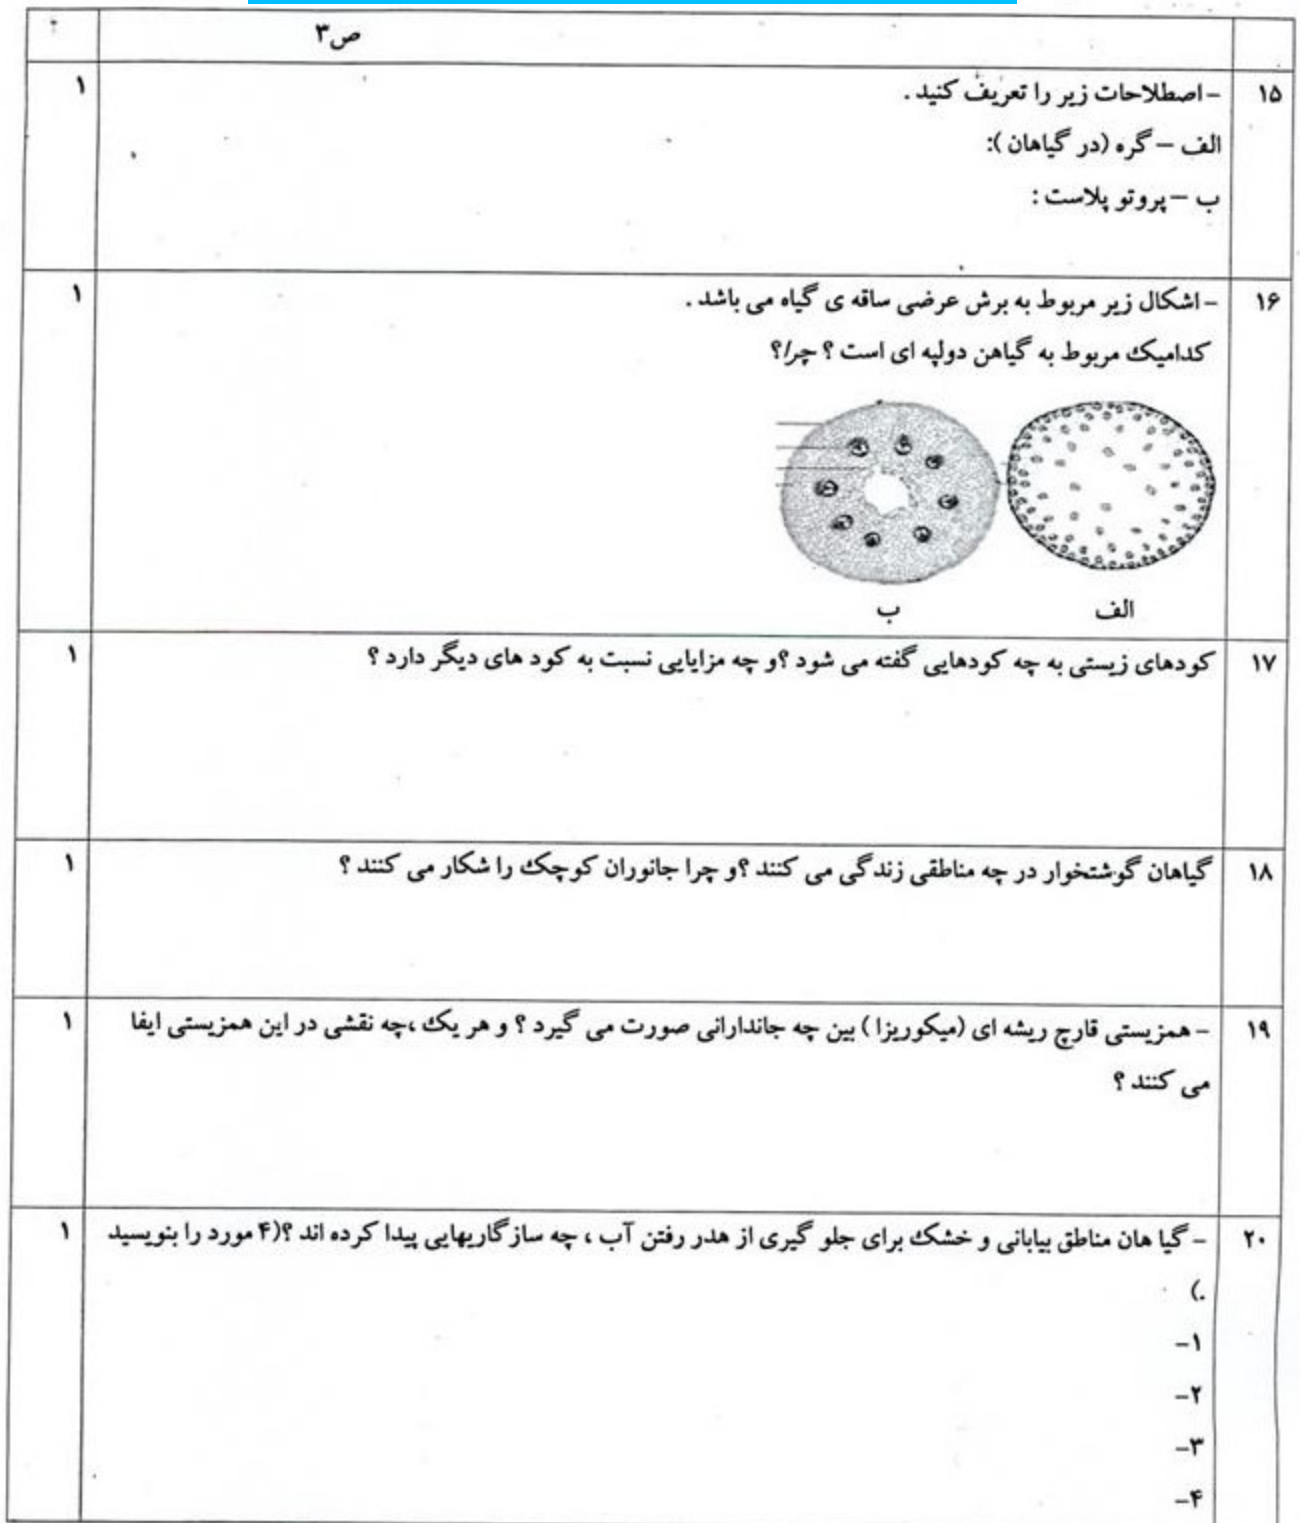 ص۳
۱۵ -اصطلاحات زیر را تعریف کنید . ۱
الف – گره (در گیاهان ):
ب – پروتو پلاست :
۱۶ -اشکال زیر مربوط به برش عرضی ساقه ی گیاه می باشد . ۱
کدامیک مربوط به گیاهن دولپه ای است ؟ چر/؟
الف ب
۱۷ کودهای زیستی به چه کودهایی گفته می شود ؟و چه مزایایی نسبت به کود های دیگر دارد ؟ ۱
۱۸ گیاهان گوشتخوار در چه مناطقی زندگی می کنند ؟و چرا جانوران کوچک را شکار می کنند ؟ ۱
۱۹ - همزیستی قارچ ریشه ای (میکوریزا ) بین چه جاندارانی صورت می گیرد ؟ و هر یک ،چه نقشی در این همزیستی ایفا ۱
می کنند ؟
۲۰ - گیا هان مناطق بیابانی و خشک برای جلو گیری از هدر رفتن آب ، چه سازگاریهایی پیدا کرده اند ؟(۴ مورد را بنویسید ۱
.)
۱-
۲-
۳-
۴-